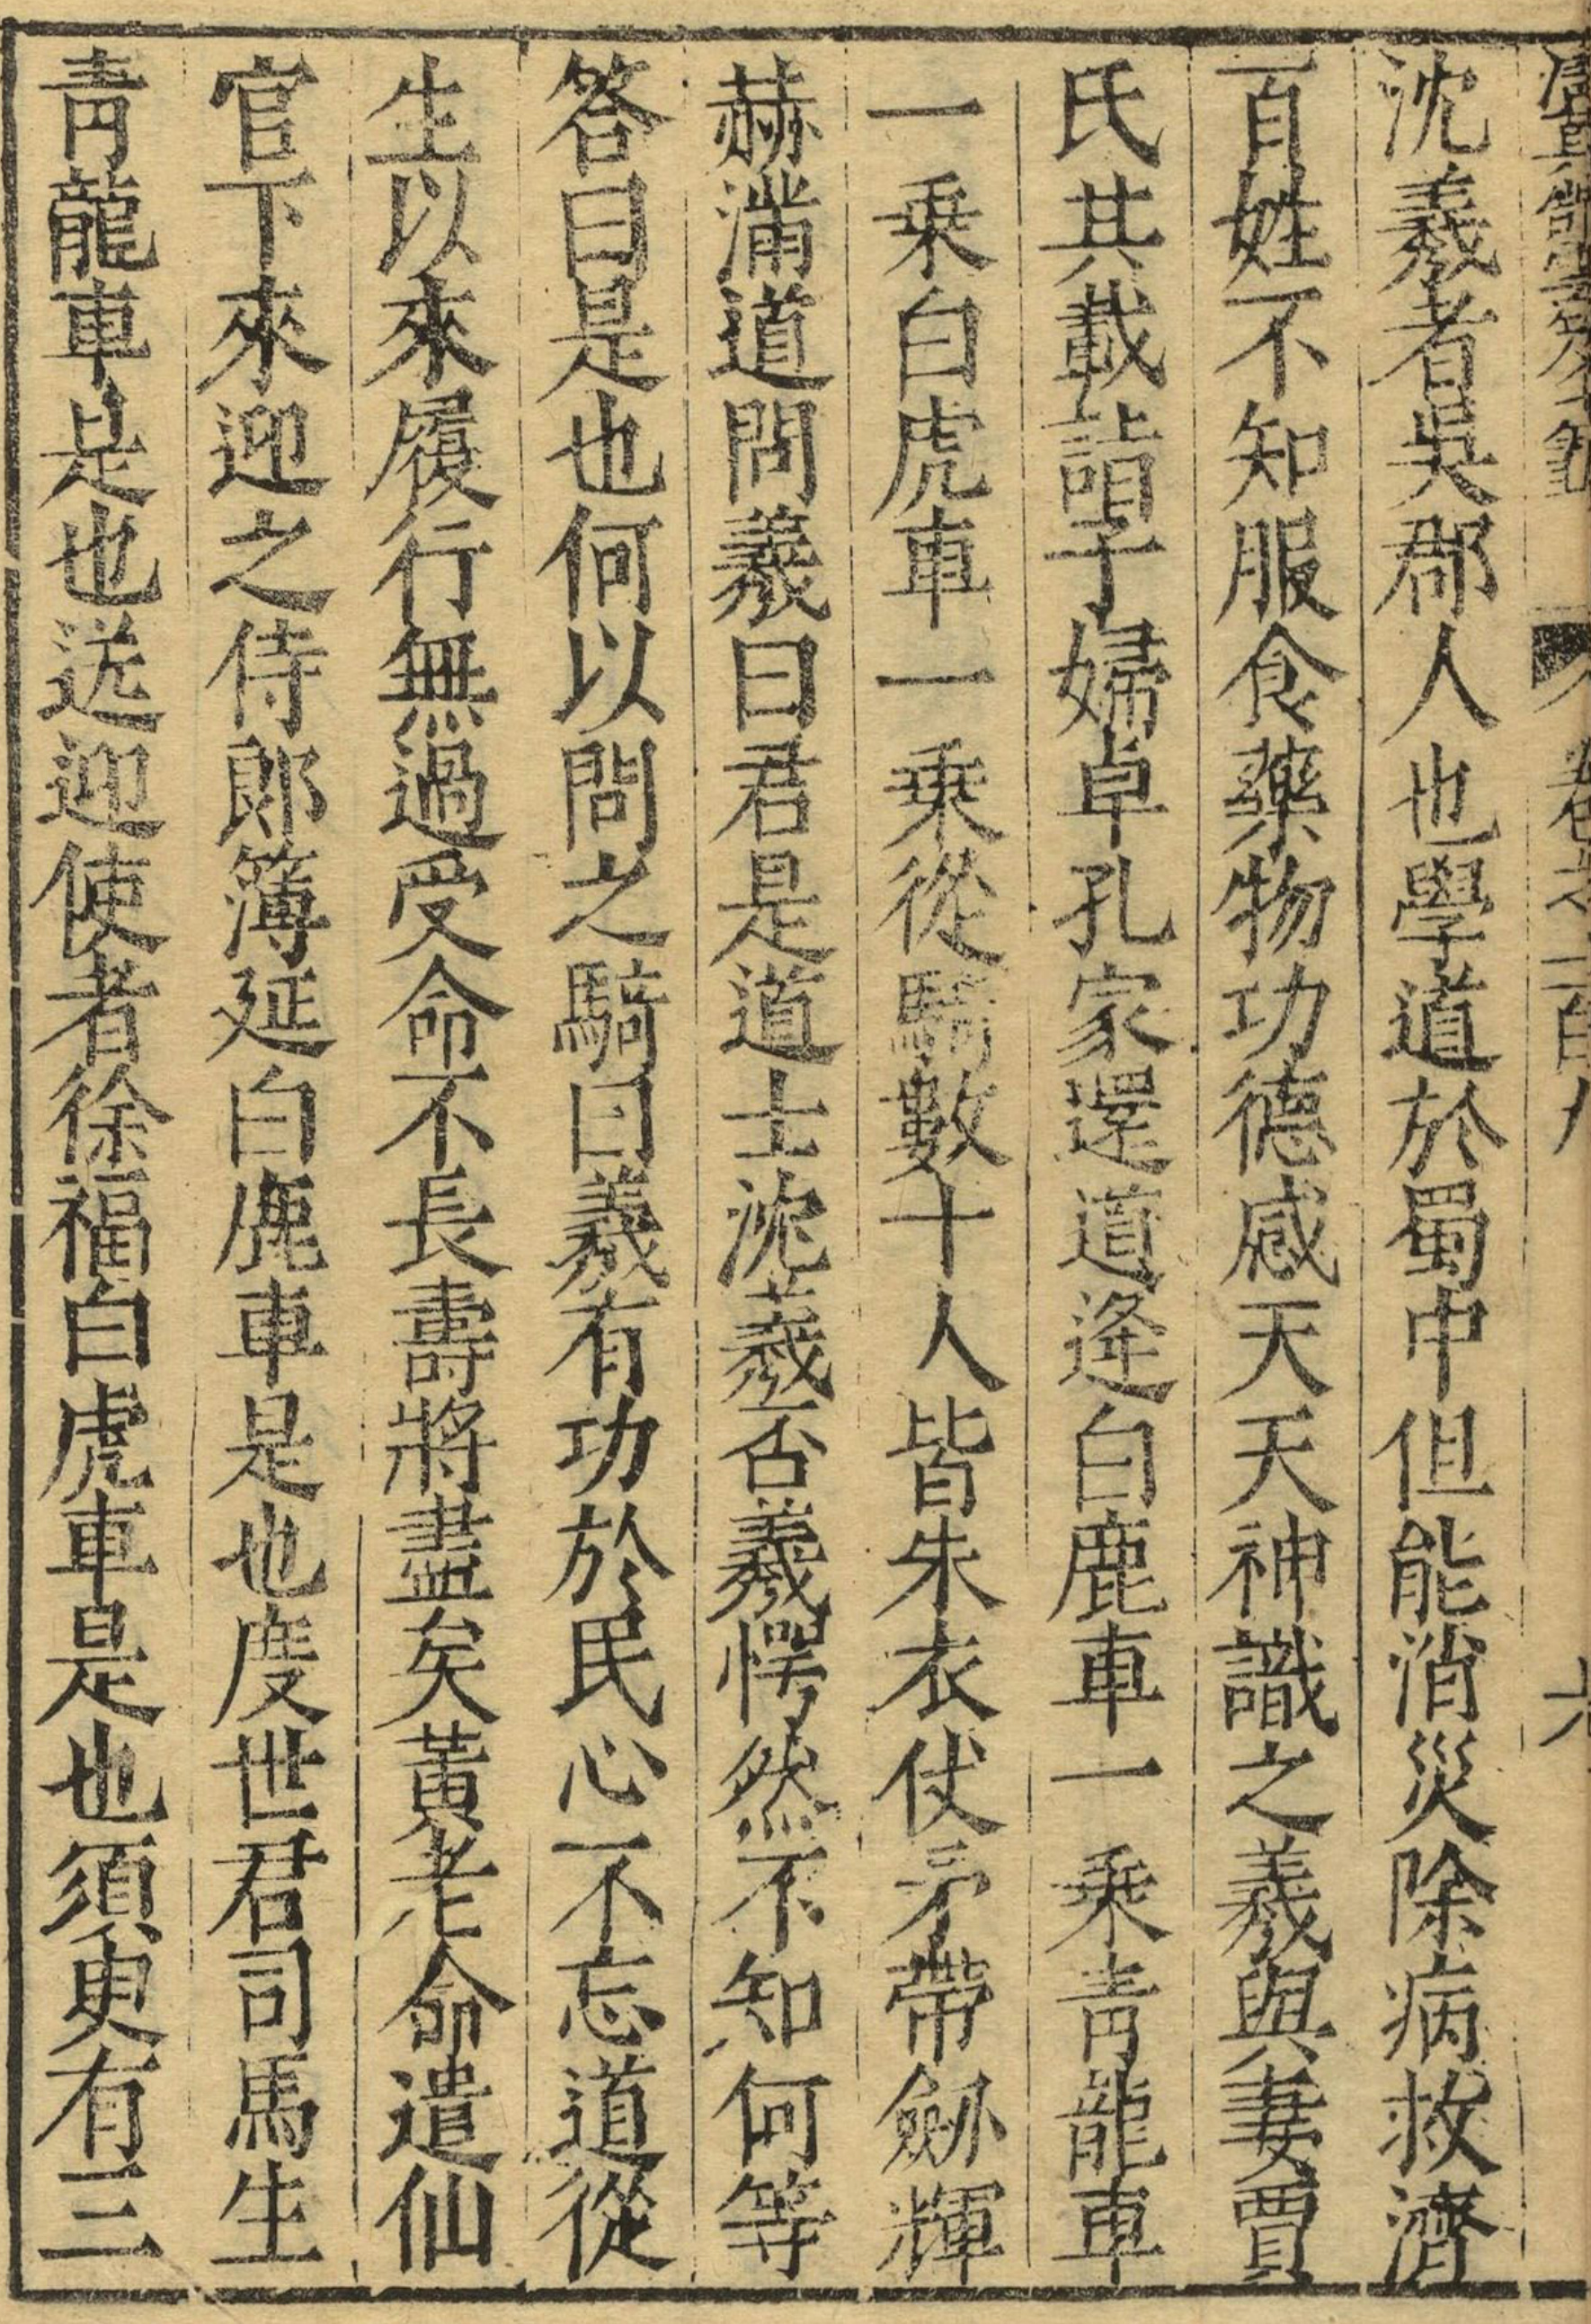 沈羲者吳郡人也學道於蜀中但能消災除病救濟
百姓不知服食藥物功德感天天神識之羲與妻賈
氏共載詣子婦卓孔家還道逢白鹿車一乘青龍車
一乘白虎車一乘從騎數十人皆朱衣仗矛帶劒輝
赫滿道問羲曰君是道士沈羲否羲愕然不知何等
答曰是也何以問之騎曰羲有功於民心不忘道從
生以來履行無過受命不長壽將盡矣黃老命遣仙
官下來迎之侍郎簿延白鹿車是也度世君司馬生
青龍車是也送迎使者徐福白虎車是也須臾有三